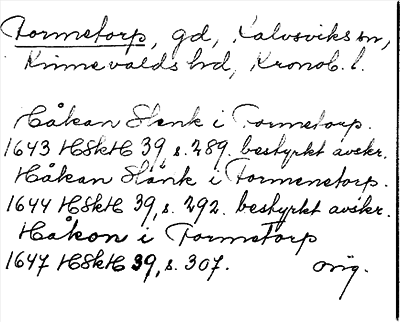 Tormetorp, gd, Kalvsviks sn,
Kinnevalds hd, Kronob. l.
Håkan Slank i Tormetorp.
1643 HSkH 39, s. 289. bestyrkt avskr.
Håkan Slånk i Tormenetorp.
1644 HSkH 39, s. 292. bestyrkt avskr.
Håkon i Tormetorp
1647 HSkH 39, s. 307. orig.